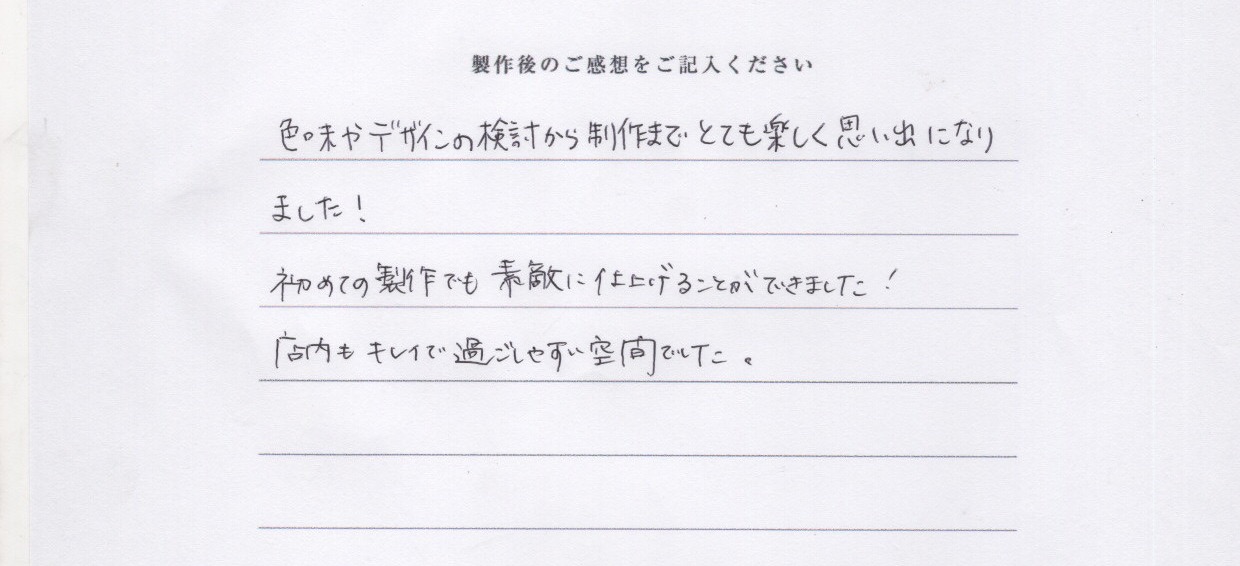 製作後のご感想をご記入ください
色味やデザインの検討から制作までとても楽しく思い出になり
ました！
初めての製作でも素敵に仕上げることができました！
店内もキレイで過ごしやすい空間でした。